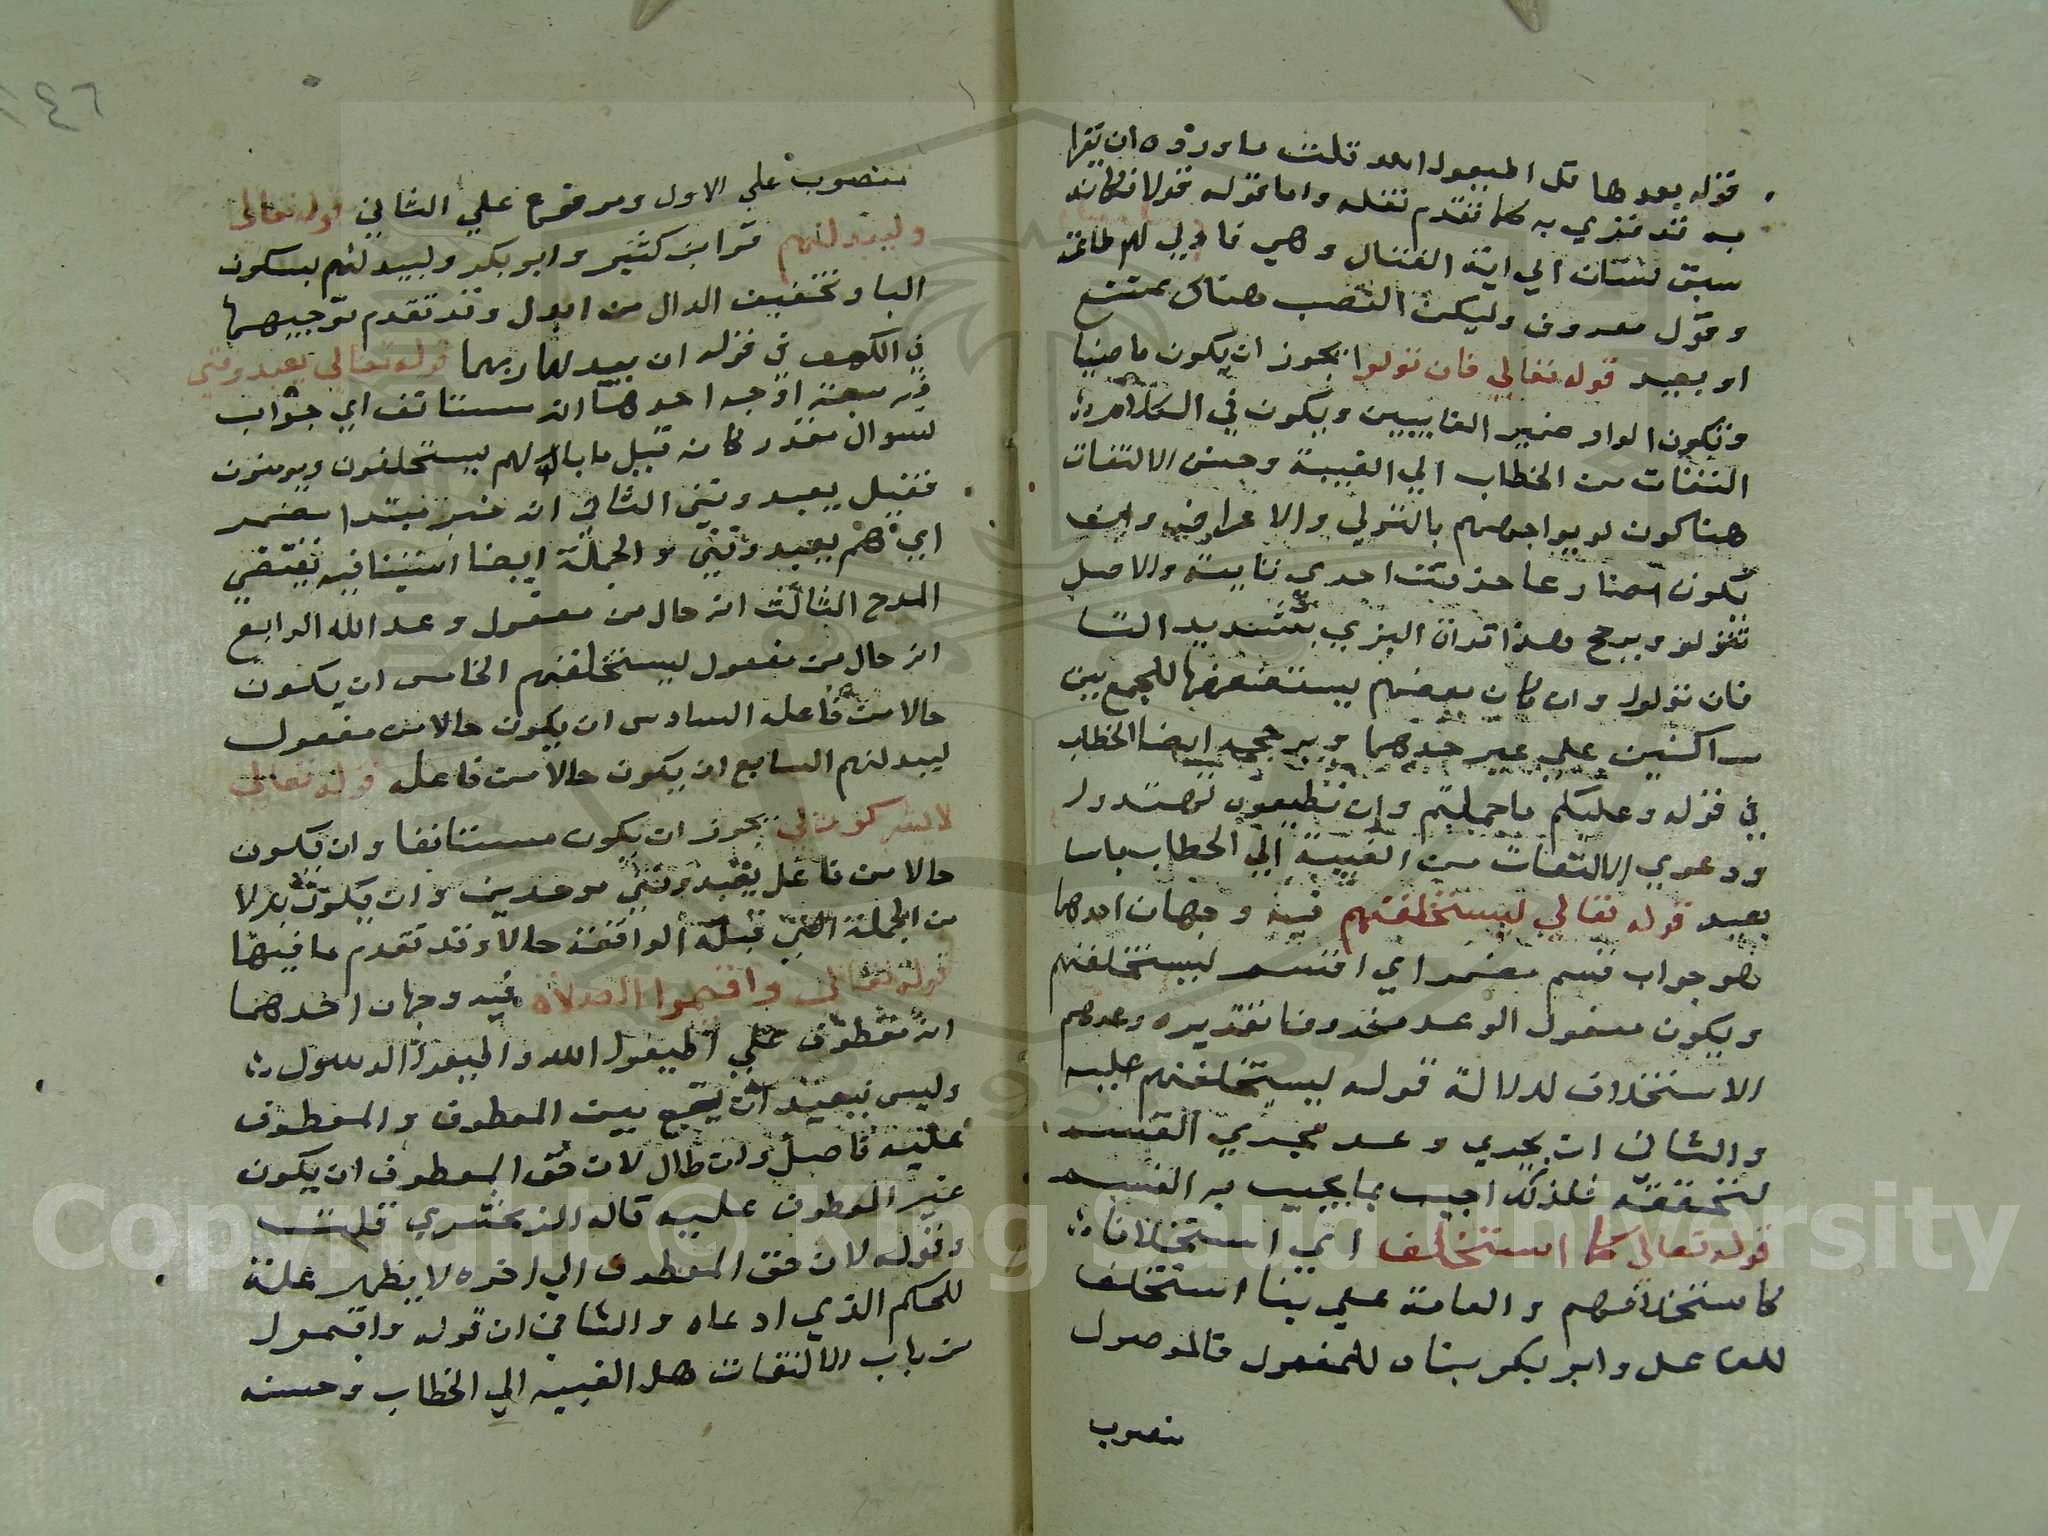 قوله بعدها قل اطيعوا الله قلت ما اوردوه ان يقرا
به قد قري به كما تقدم نقله واما قوله قولا فكانه
سبق لسان الي اية القتال وهي فاولي لهم طاعة
وقول معروف وليكن النصب هناك ممتنع
او بعيد قوله تعالي فان تولوا يجوز ان يكون ماضيا
وتكون الواو ضمير الغايبين ويكون في الكلام
التفات من الخطاب الي الغيبة وحسن الالتفات
هنا كون لم يواجههم بالتولي والاعراض وان
تكون مضارعا حذفت احدي تاييه والاصل
تتولوا ويرجح هذا قراة البزي بتشديد التا
فان تولوا وان كان بعضهم يستضعفها للجمع بين
ساكنين علي غير حدهما ويرجحه ايضا الخطاب
في قوله وعليكم ما حملتم وان تطيعوه تهتدوا
ودعوي الالتفات من الغيبة الي الخطاب ثانيا
بعيد قوله تعالي ليستخلفنهم فيه وجهان احدهما
هو جواب قسم مضمر اي اقسم ليستخلفنهم
ويكون مفعول الوعد محذوفا تقديره وعدهم
الاستخلاف لدلالة قوله ليستخلفنهم عليه
والثاني ان يجري وعد مجري القسم
لتحققه فلذلك اجيب بما يجيب به القسم
قوله تعالي كما استخلف اي استخلافا
كاستخلافهم والعامة علي بنا استخلف
للفاعل وابو بكر بناه للمفعول فالموصول
منصوب
١٤٦
منصوب علي الاول ومرفوع علي الثاني قوله تعالى
وليبدلنهم قرا ابن كثير وابو بكر وليبدلنهم بسكون
البا وتخفيف الدال من ابدل وقد تقدم توجيهها
في الكهف في قوله ان يبدلهما ربهما قوله تعالي يعبدونني
فيه سبعة اوجه احدها انه مستانف اي جواب
لسوال مقدر كانه قيل ما بالهم يستخلفون ويومنون
فقيل يعبدونني الثاني انه خبر مبتدا مضمر
اي هم يعبدونني والجملة ايضا استينافيه تقتضي
المدح الثالث انه حال من مفعول وعد الله الرابع
انه حال من مفعول ليستخلفنهم الخامس ان يكون
حالا من فاعله السادس ان يكون حالا من مفعول
ليبدلنهم السابع ان يكون حالا من فاعله قوله تعالي
لا يشركون بي يجوز ان يكون مستانفا وان يكون
حالا من فاعل يعبدونني موحدين وان يكون بدلا
من الجملة التي قبله الواقعة حالا وقد تقدم ما فيها
قوله تعالى واقيموا الصلاة فيه وجهان احدهما
انه معطوف علي اطيعوا الله واطيعوا الرسول
وليس ببعيد ان يقع بين المعطوف والمعطوف
عليه فاصل وان طال لان حق المعطوف ان يكون
غير المعطوف عليه قاله الزمخشري قلت
وقوله لان حق المعطوف الي اخره لا يظهر علة
للحكم الذي ادعاه والثاني ان قوله واقيموا
من باب الالتفات من الغيبه الي الخطاب وحسنه